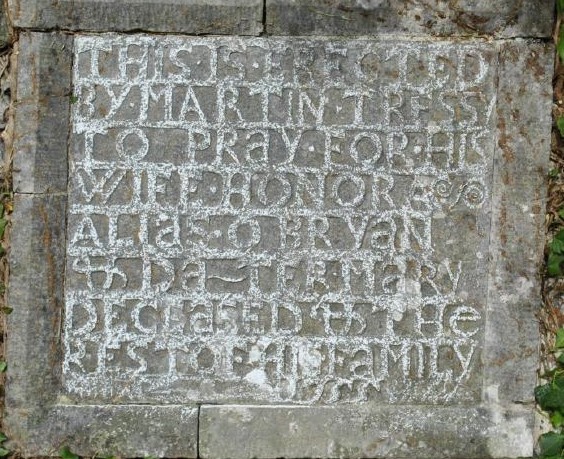 THIS · IS · ERECTED
BY · MARTIN · TRESSY
TO PRay · FOR · HIS
WIFE · HONORa
ALIaS · O BRYaN
& Da~TER · MaRY
DECEaSED & THe
REST OF HIS FaMILY